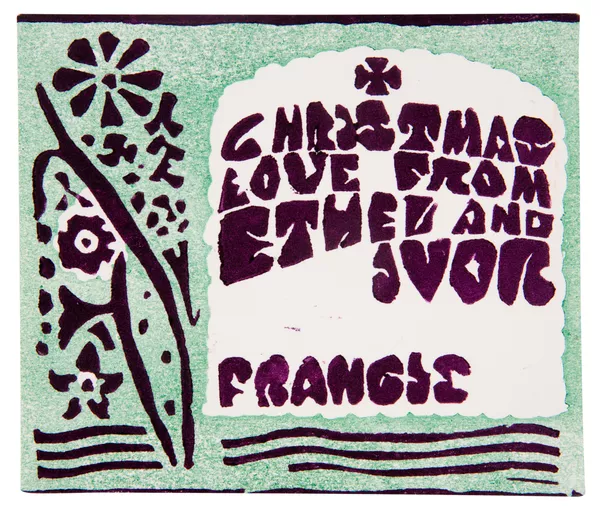 CHRISTMAS
LOVE FROM
ETHEL AND
IVOR
FRANCIE